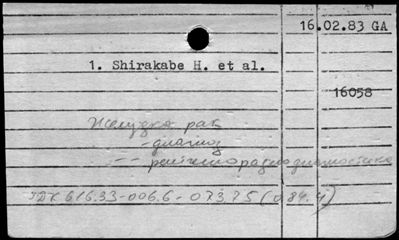 16.02.83 GA
1. Shirakabe H. et al.
16058
Желудка рак
- диагноз
- - рентгенорадиодиагностика
УДК 616.33-006.6-073.75(084.4)